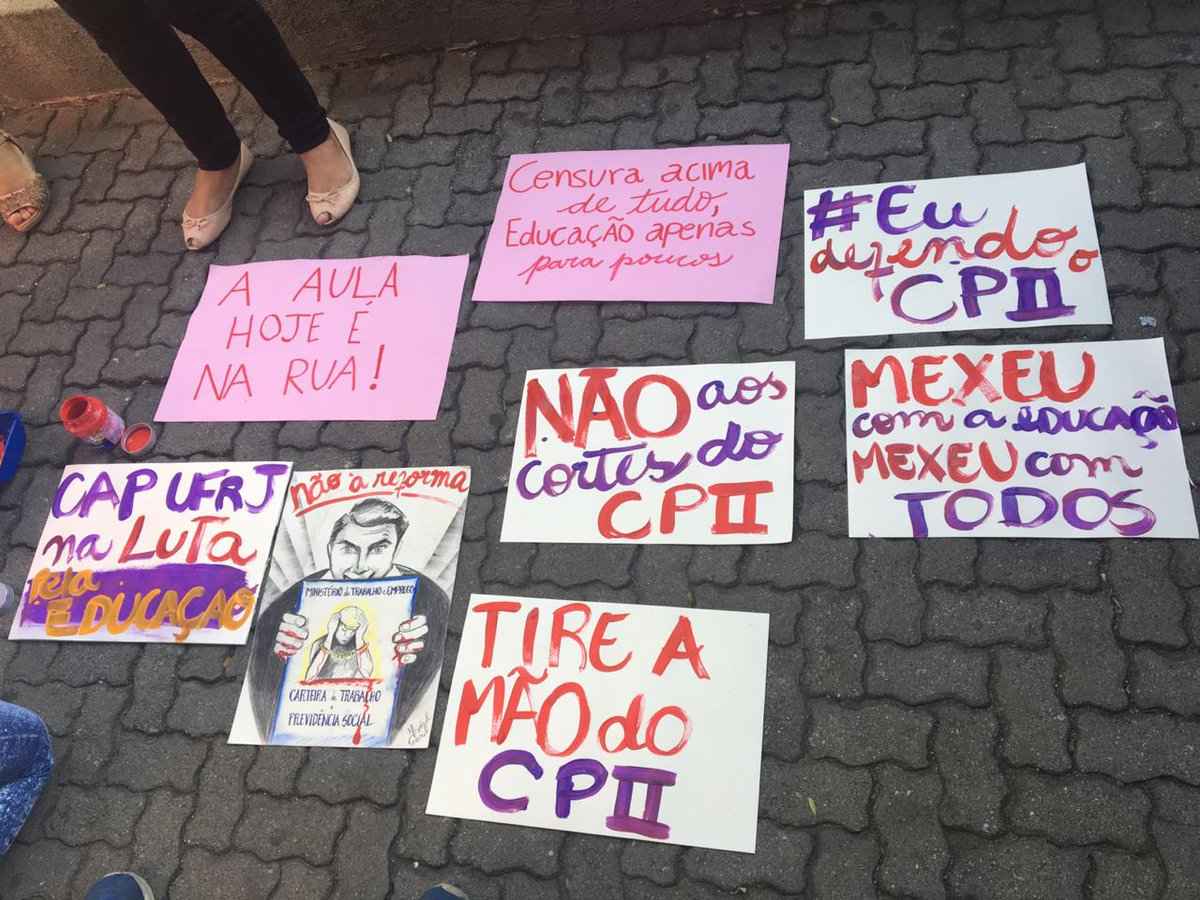 Censura acima
de tudo,
Educação apenas
para poucos
#Eu
defendo o
CPII
A AULA
HOJE É
NA RUA!
NÃO aos
cortes do
CPII
MEXEU
com a educação
MEXEU com
TODOS
CAP UFRJ
na LUTA
pela
EDUCAÇÃO
não à reforma
MINISTÉRIO do TRABALHO e EMPREGO
CARTEIRA de TRABALHO
e
PREVIDÊNCIA SOCIAL
TIRE A
MÃO do
CPII